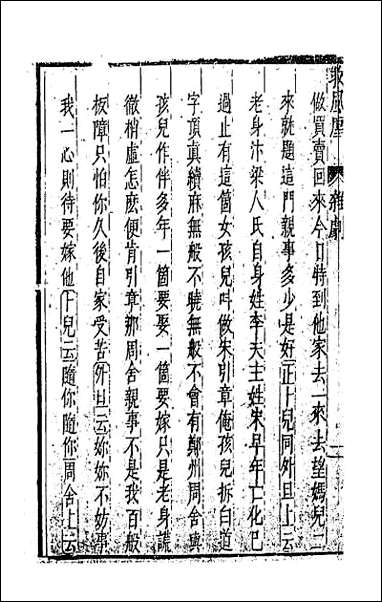 救風塵　雜劇　二
做買賣回來今日特到他家去一來去望媽兒二
來就題這門親事多少是好正上卜兒同外旦上云
老身汴梁人氏自身姓李夫主姓宋早年亡化已
過止有這箇女孩兒叫做宋引章俺孩兒拆白道
字頂真續麻無般不曉無般不會有鄭州周舍與
孩兒作伴多年一箇要娶一箇要嫁只是老身謊
徹梢虛怎麽便肯引章那周舍親事不是我百般
板障只怕你久後自家受苦外旦云妳妳不妨事
我一心則待要嫁他卜兒云隨你隨你周舍上云